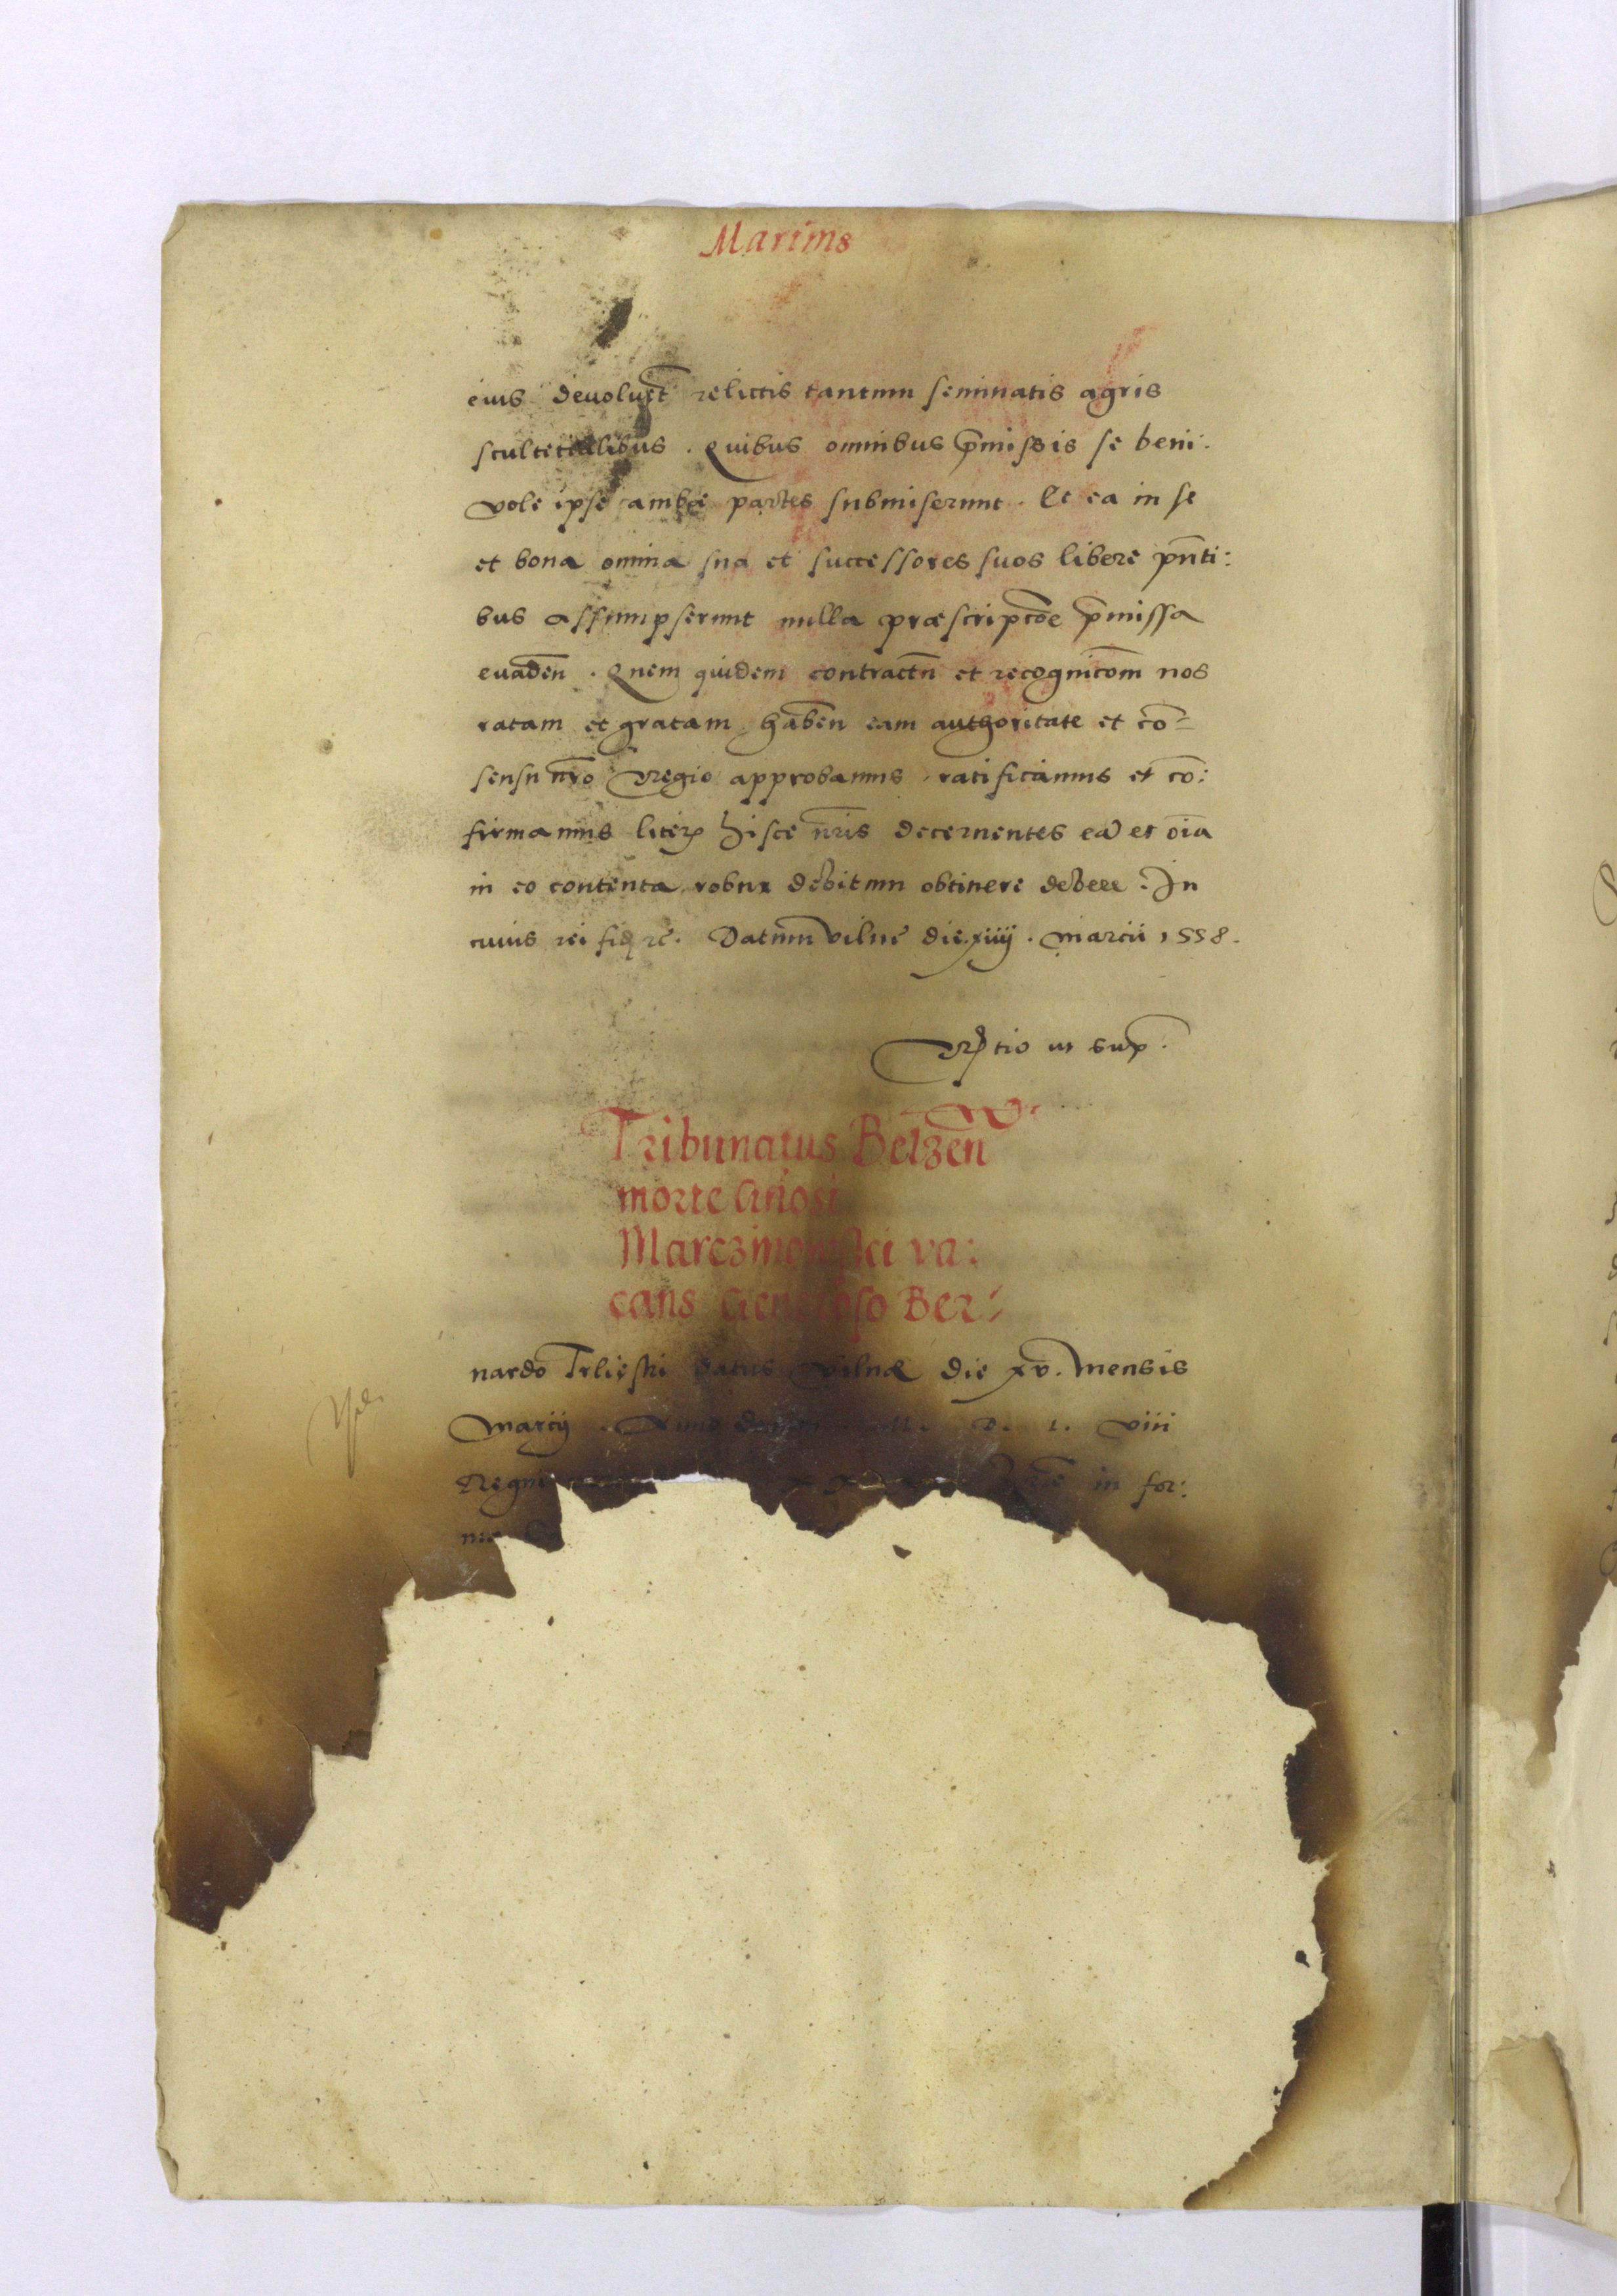 Martius
eius devolvet̄ relictis tantum seminatis agris
scultetialibus . Quibus omnibus p̄missis se beni:
vole ipse ambe partes submiserunt . Et ea in se
et bona omnia sua et successores suos libere pn̄ti:
bus assumpserunt nulla præscripcōe p̄missa
evadēn . Quem quidem contractū et recognicōm nos
ratam et gratam habēn eam authoritate et cō=
sensu nr̄o Regio approbamus ratificamus et cō:
firmamus literꝭ hisce nr̄is decernentes ea et oīa
in eo contenta robur debitum obtinere debere . In
cuius rei fidē rē. Datum Vilne die xiiij . Marcii 1558 .
Rꝭtio ut sup̄
Tribunatus Belzēn
morte Gn̄osi
Marczinowski va:
cans Generoso Ber:
nardo datus Vilnæ die xv . Mensis
Marcij . Anno D. L. viii
Regni in for:
ma